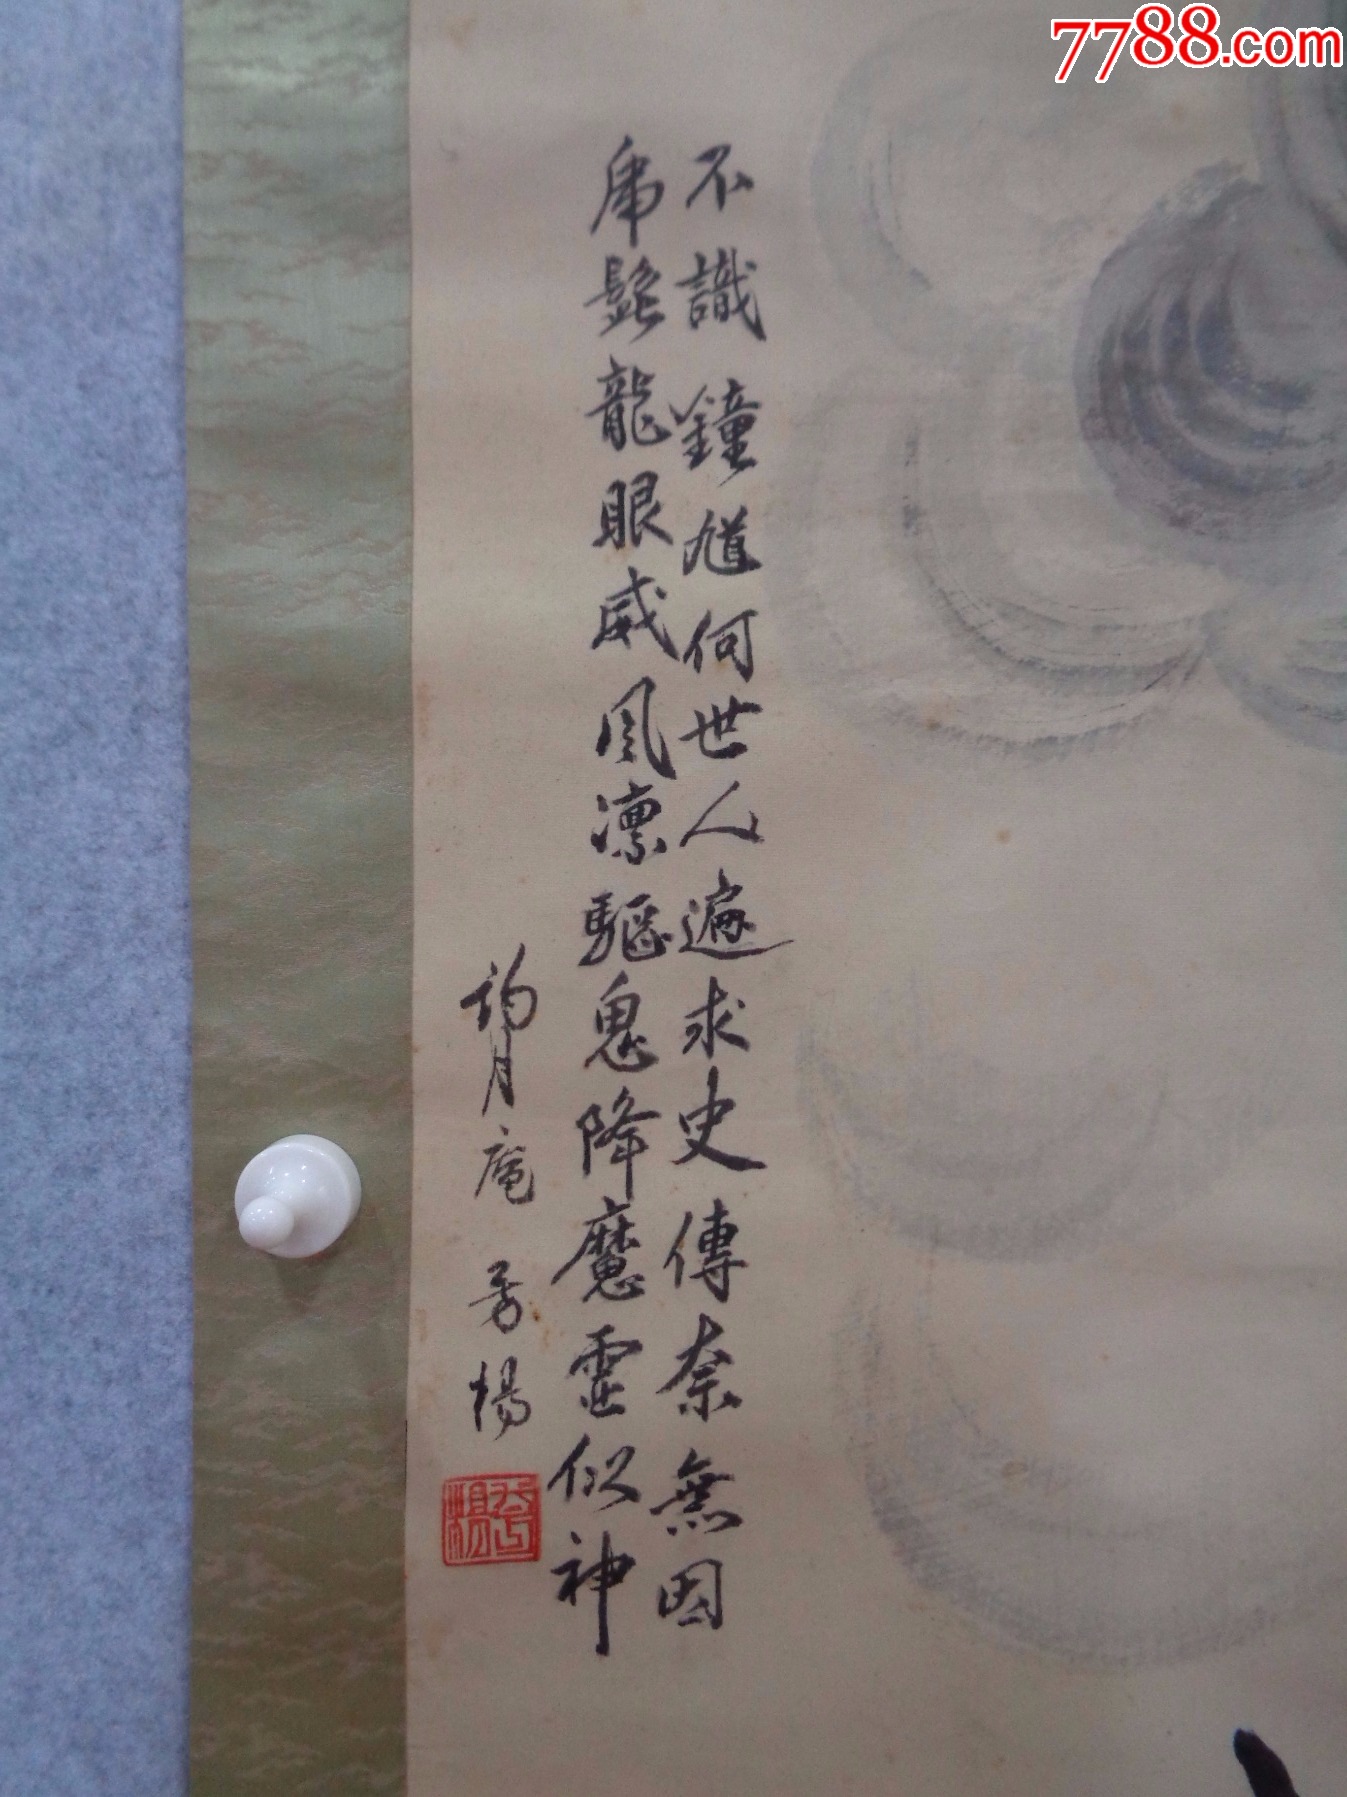 7788.com
不識鐘馗何世人遍求史傳奈無因
虎髯龍眼威風凛驅鬼降魔靈似神
鈞月庵 芳楊